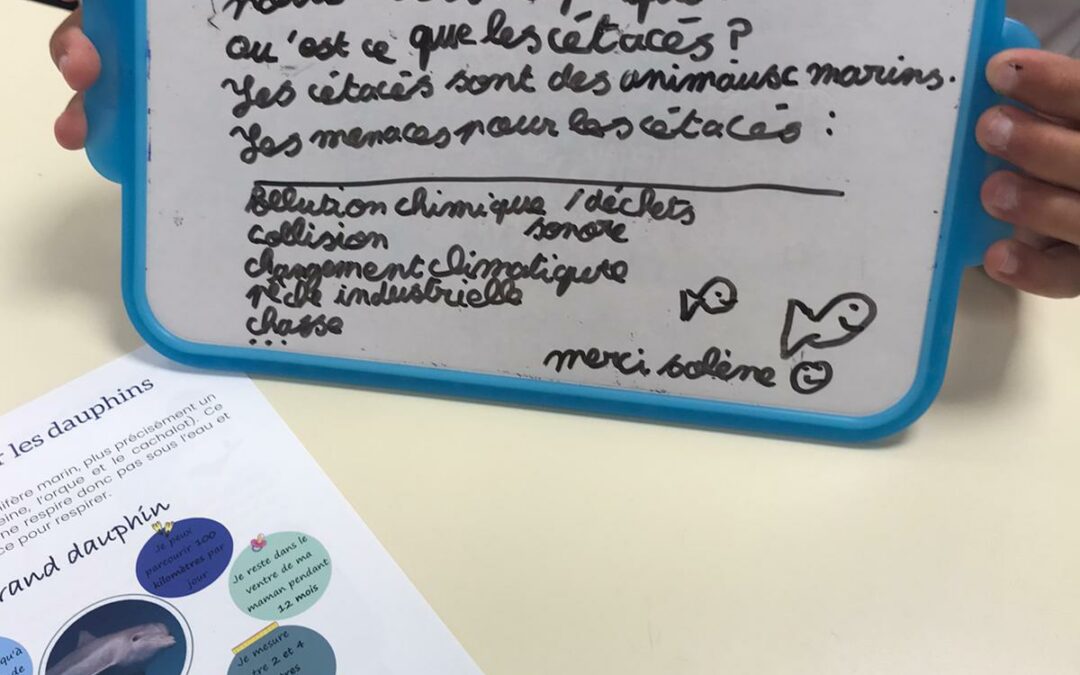 qu'est ce que les cétacés ?
Les cétacés sont des animaux marins.
Les menaces pour les cétacés :
Pollution chimique / déchets
sonore
collision
changement climatique
pêche industrielle
chasse
...
merci solène
r les dauphins
ifère marin, plus précisément un
eine, l'orque et le cachalot). Ce
ne respire donc pas sous l'eau et
ce pour respirer.
rand dauphin
Je peux
parcourir 100
kilomètres par
jour
Je reste dans le
ventre de ma
maman pendant
12 mois
Je mesure
tre 2 et 4
ètres
qu'à
de